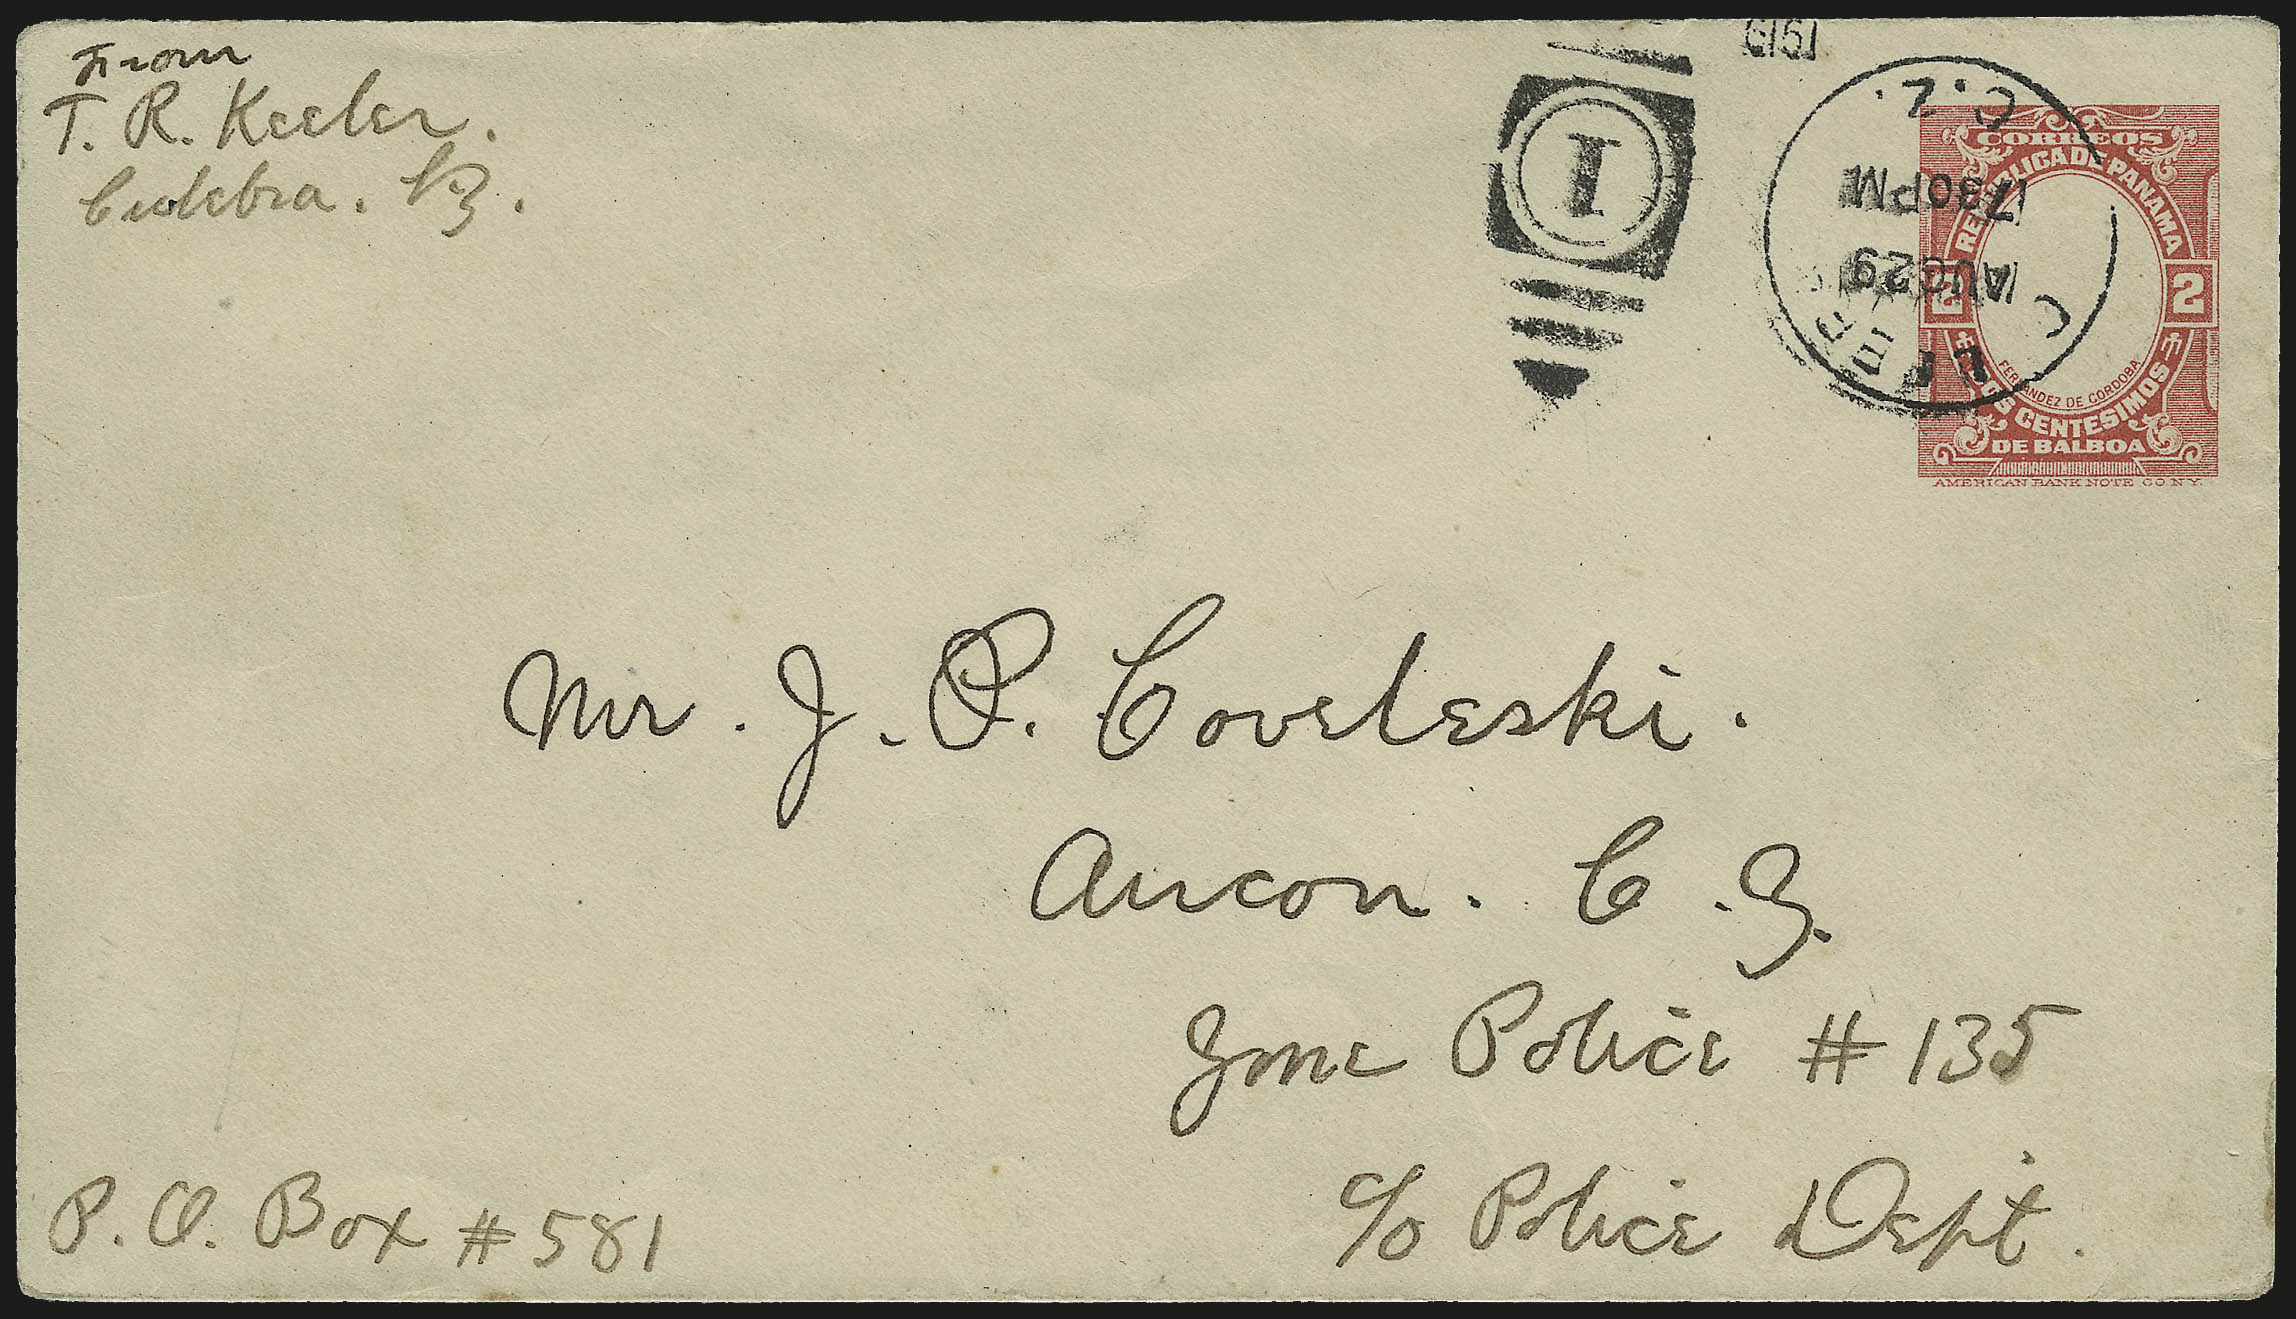 From
T. R. Keeler.
Culebra. CZ.
1915
C.Z.
730PM
AUG 29
1
CORREOS
REPUBLICA DE PANAMA
2 2
FERNANDEZ DE CORDOBA
DOS CENTESIMOS
DE BALBOA
AMERICAN BANK NOTE CO. N.Y.
Mr. J. P. Coveleski.
Ancon. C.Z.
Zone Police # 135
c/o Police Dept.
P. O. Box # 581